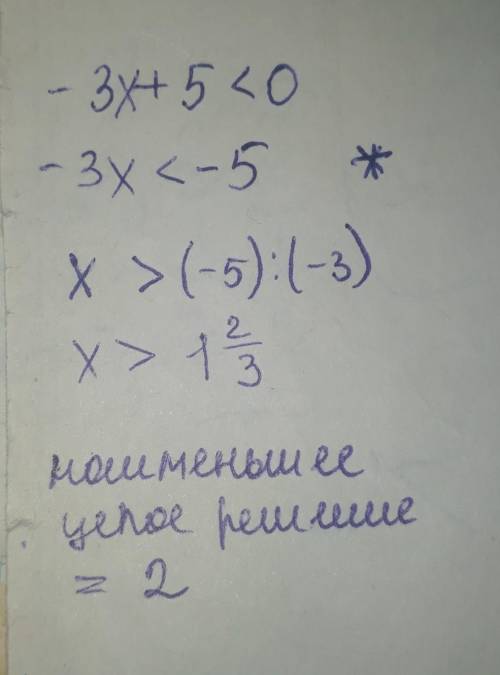 - 3x + 5 < 0
- 3x < - 5 *
x > (-5) : (-3)
x > 1 2/3
наименьшее
целое решение
= 2